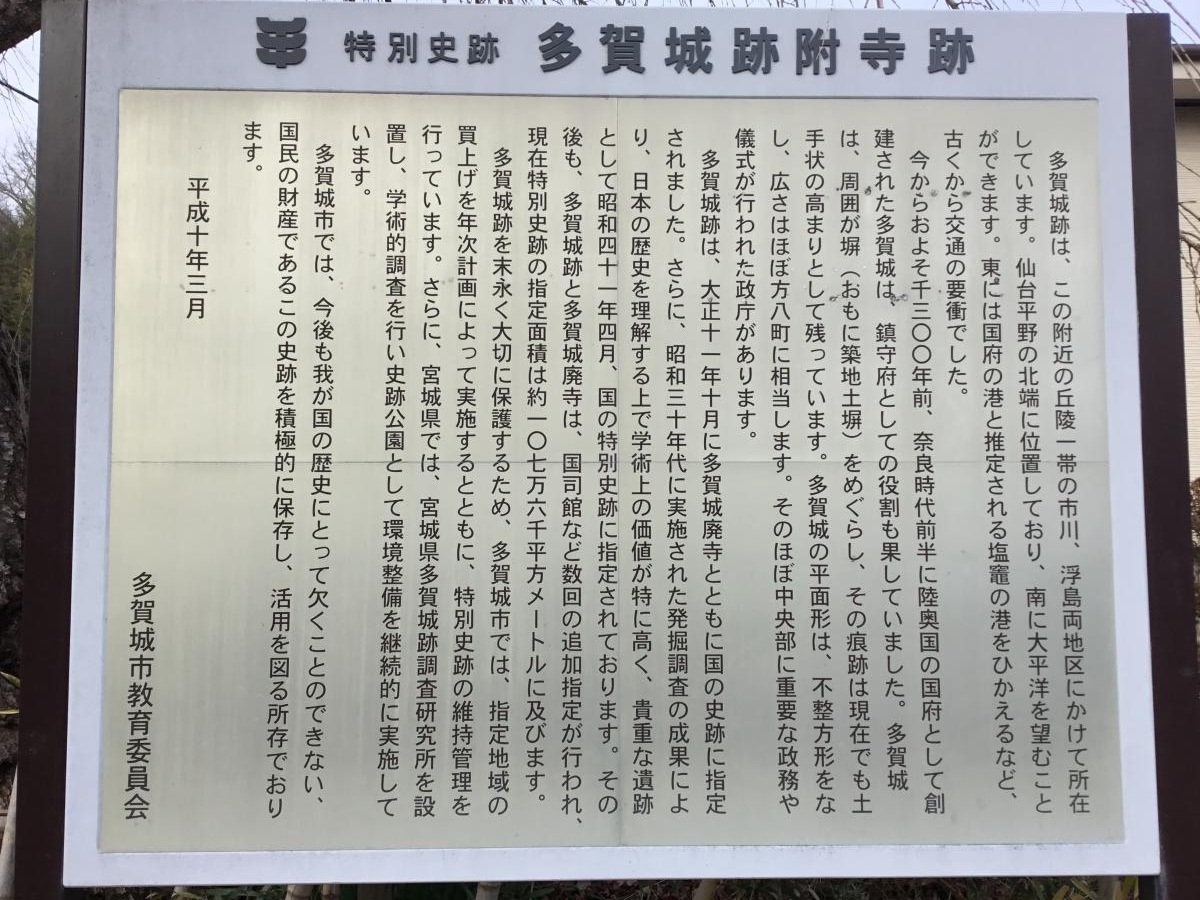 特別史跡 多賀城跡附寺跡
多賀城跡は、この附近の丘陵一帯の市川、浮島両地区にかけて所在
しています。仙台平野の北端に位置しており、南に大平洋を望むこと
ができます。東には国府の港と推定される塩竈の港をひかえるなど、
古くから交通の要衝でした。
今からおよそ千三〇〇年前、奈良時代前半に陸奥国の国府として創
建された多賀城は、鎮守府としての役割も果していました。多賀城
は、周囲が塀（おもに築地土塀）をめぐらし、その痕跡は現在でも土
手状の高まりとして残っています。多賀城の平面形は、不整方形をな
し、広さはほぼ方八町に相当します。そのほぼ中央部に重要な政務や
儀式が行われた政庁があります。
多賀城跡は、大正十一年十月に多賀城廃寺とともに国の史跡に指定
されました。さらに、昭和三十年代に実施された発掘調査の成果によ
り、日本の歴史を理解する上で学術上の価値が特に高く、貴重な遺跡
として昭和四十一年四月、国の特別史跡に指定されております。その
後も、多賀城跡と多賀城廃寺は、国司館など数回の追加指定が行われ、
現在特別史跡の指定面積は約一〇七万六千平方メートルに及びます。
多賀城跡を末永く大切に保護するため、多賀城市では、指定地域の
買上げを年次計画によって実施するとともに、特別史跡の維持管理を
行っています。さらに、宮城県では、宮城県多賀城跡調査研究所を設
置し、学術的調査を行い史跡公園として環境整備を継続的に実施して
います。
多賀城市では、今後も我が国の歴史にとって欠くことのできない、
国民の財産であるこの史跡を積極的に保存し、活用を図る所存でおり
ます。
平成十年三月
多賀城市教育委員会